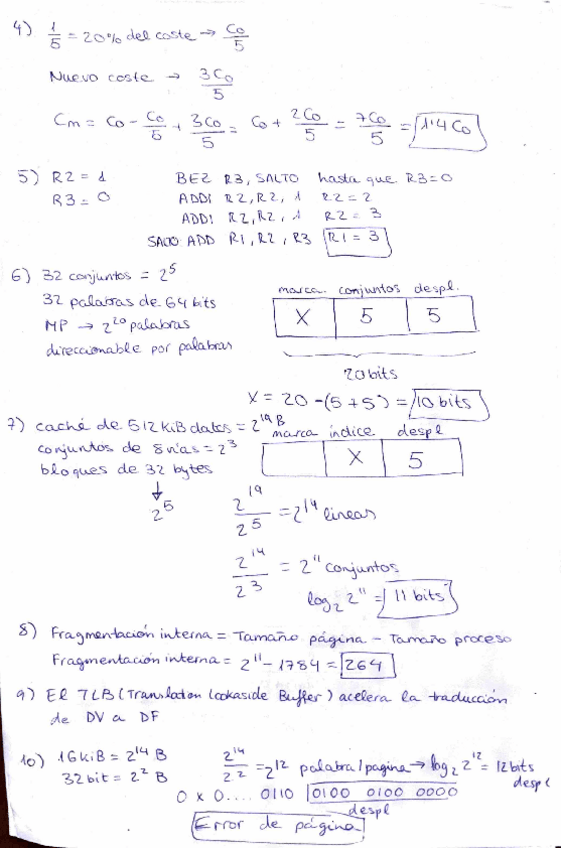 4) 1/5 = 20% del coste → C0/5
Nuevo coste → 3C0/5
Cm = C0 - C0/5 + 3C0/5 = C0 + 2C0/5 = 7C0/5 = 1'4 C0
5) R2 = 1 BEZ R3, SALTO hasta que R3=0
R3 = 0 ADDI R2, R2, 1 R2 = 2
ADDI R2, R2, 1 R2 = 3
SALTO ADD R1, R2, R3 R1 = 3
6) 32 conjuntos = 2^5
32 palabras de 64 bits
MP → 2^20 palabras
direccionable por palabras
marca conjuntos despl.
X 5 5
20 bits
X = 20 - (5+5) = 10 bits
7) caché de 512 KiB datos = 2^19 B
conjuntos de 8 vías = 2^3
bloques de 32 bytes
2^5
marca índice despl
X 5
2^19/2^5 = 2^14 lineas
2^14/2^3 = 2^11 conjuntos
log2 2^11 = 11 bits
8) Fragmentación interna = Tamaño página - Tamaño proceso
Fragmentación interna = 2^11 - 1784 = 264
9) El TLB (Translation Lookaside Buffer) acelera la traducción
de DV a DF
10) 16 KiB = 2^14 B 2^14/2^2 = 2^12 palabra/pagina → log2 2^12 = 12 bits
32 bit = 2^2 B despl
0 x 0.... 0110 0100 0100 0000
despl
Error de página